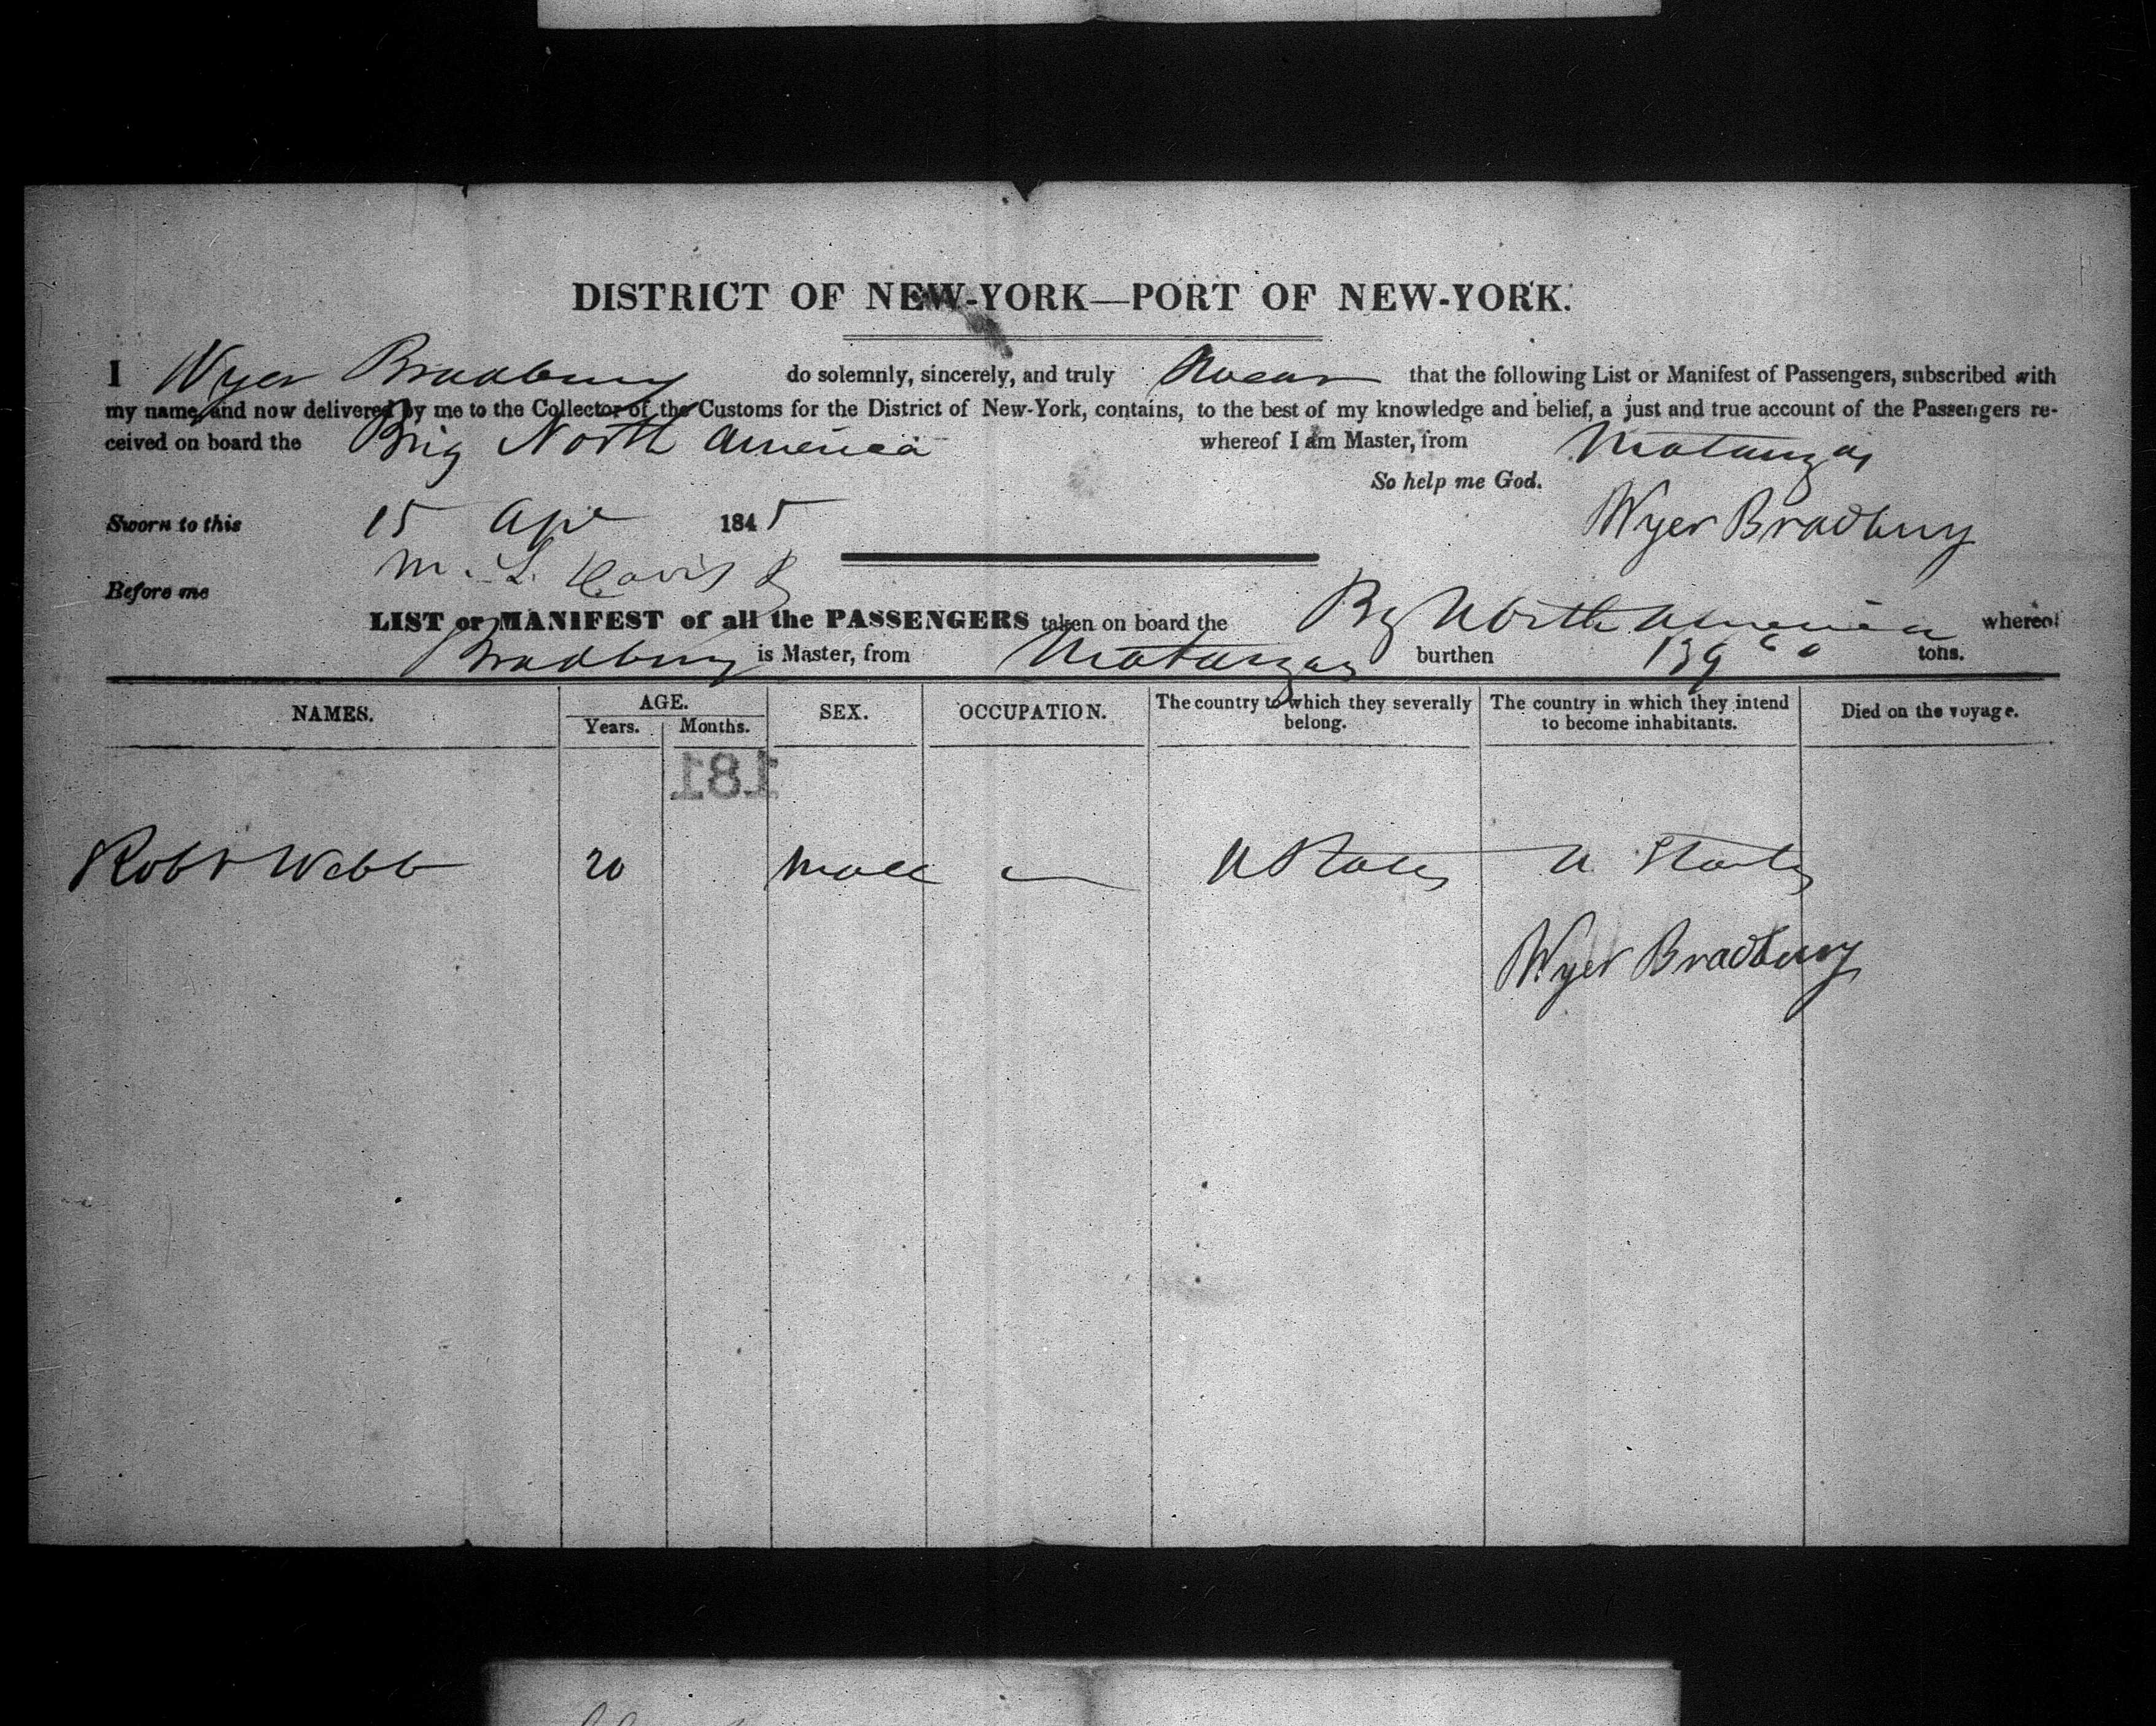 DISTRICT OF NEW-YORK—PORT OF NEW-YORK.
I Wyer Bradbury do solemnly, sincerely, and truly Swear that the following List or Manifest of Passengers, subscribed with
my name, and now delivered by me to the Collector of the Customs for the District of New-York, contains, to the best of my knowledge and belief, a just and true account of the Passengers re-
ceived on board the Brig North America whereof I am Master, from Matanzas
So help me God.
Sworn to this 15 Apr 1845 Wyer Bradbury
Before me M. L. Davis
LIST or MANIFEST of all the PASSENGERS taken on board the Bg North America whereof
Bradbury is Master, from Matanzas burthen 139 tons.
NAMES. AGE. SEX. OCCUPATION. The country to which they severally belong. The country in which they intend to become inhabitants. Died on the voyage.
Years. Months.
181
Robt Webb 20 Male — U States U States
Wyer Bradbury